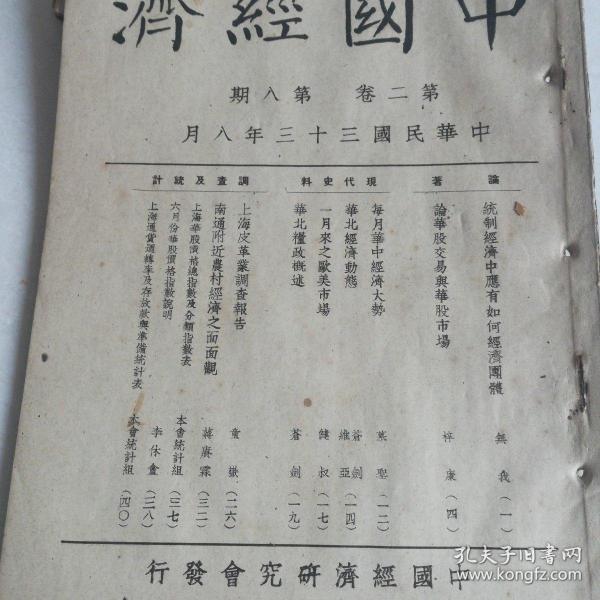 中國經濟
第二卷 第八期
中華民國三十三年八月
論著
統制經濟中應有如何經濟團體 無我（一）
論華股交易與華股市場 梓康（四）
現代史料
每月華中經濟大勢 葉聖（一二）
華北經濟動態 蒼劍 維亞（一四）
一月來之歐美市場 錢叔（一七）
華北糧政概述 蒼劍（一九）
調查及統計
上海皮革業調查報告 童嶽（二六）
南通附近農村經濟之面面觀 蔣賡霖（三二）
上海華股價格總指數及分類指數表 本會統計組（三七）
六月份華股價格指數說明 李休盦（三八）
上海通貨週轉率及存放款與準備統計表 本會統計組（四〇）
中國經濟研究會發行
孔夫子旧书网
www.kongfz.com